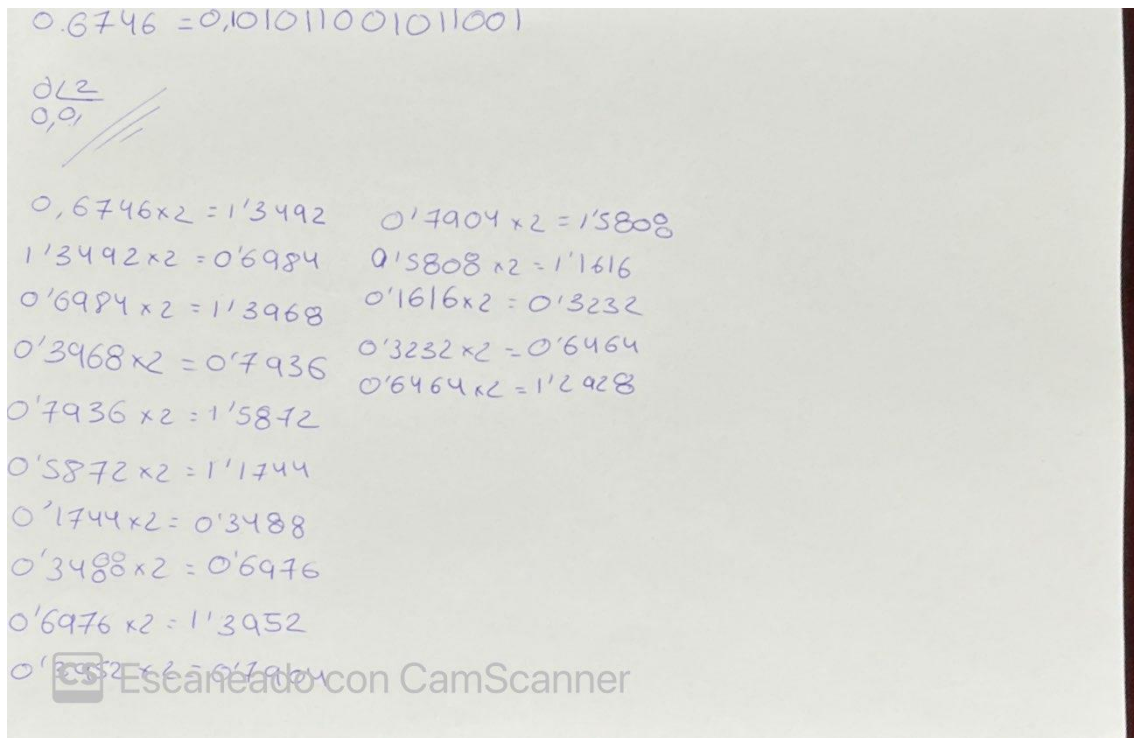 0.6746 = 0,101011001011001
0∟2
0,0,
0,6746x2 = 1'3492
1'3492x2 = 0'6984
0'6984 x2 = 1'3968
0'3968x2 = 0'7936
0'7936 x2 = 1'5872
0'5872 x2 = 1'1744
0'1744x2 = 0'3488
0'3488x2 = 0'6976
0'6976 x2 = 1'3952
0'3952 x2 = 0'7904
0'7904 x2 = 1'5808
0'5808 x2 = 1'1616
0'1616x2 = 0'3232
0'3232x2 = 0'6464
0'6464x2 = 1'2928
CS Escaneado con CamScanner